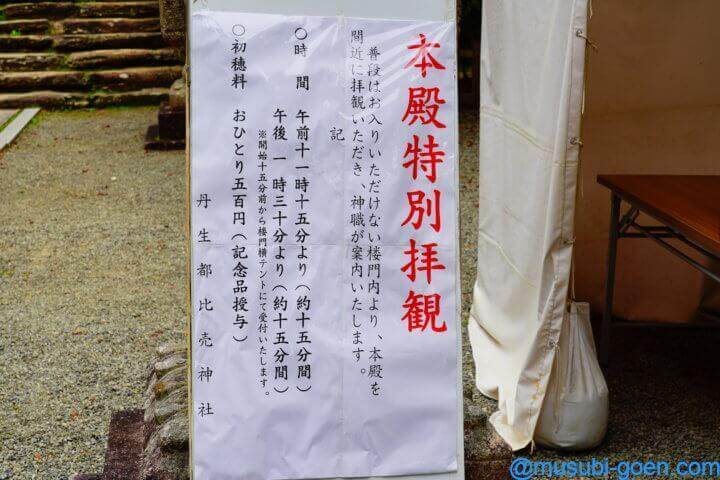 本殿特別拝観
普段はお入りいただけない楼門内より、本殿を
間近に拝観いただき、神職が案内いたします。
記
○時間 午前十一時十五分より(約十五分間)
午後一時三十分より(約十五分間)
※開始十五分前から楼門横テントにて受付いたします。
○初穂料 おひとり五百円(記念品授与)
丹生都比売神社
@musubi-goen.com